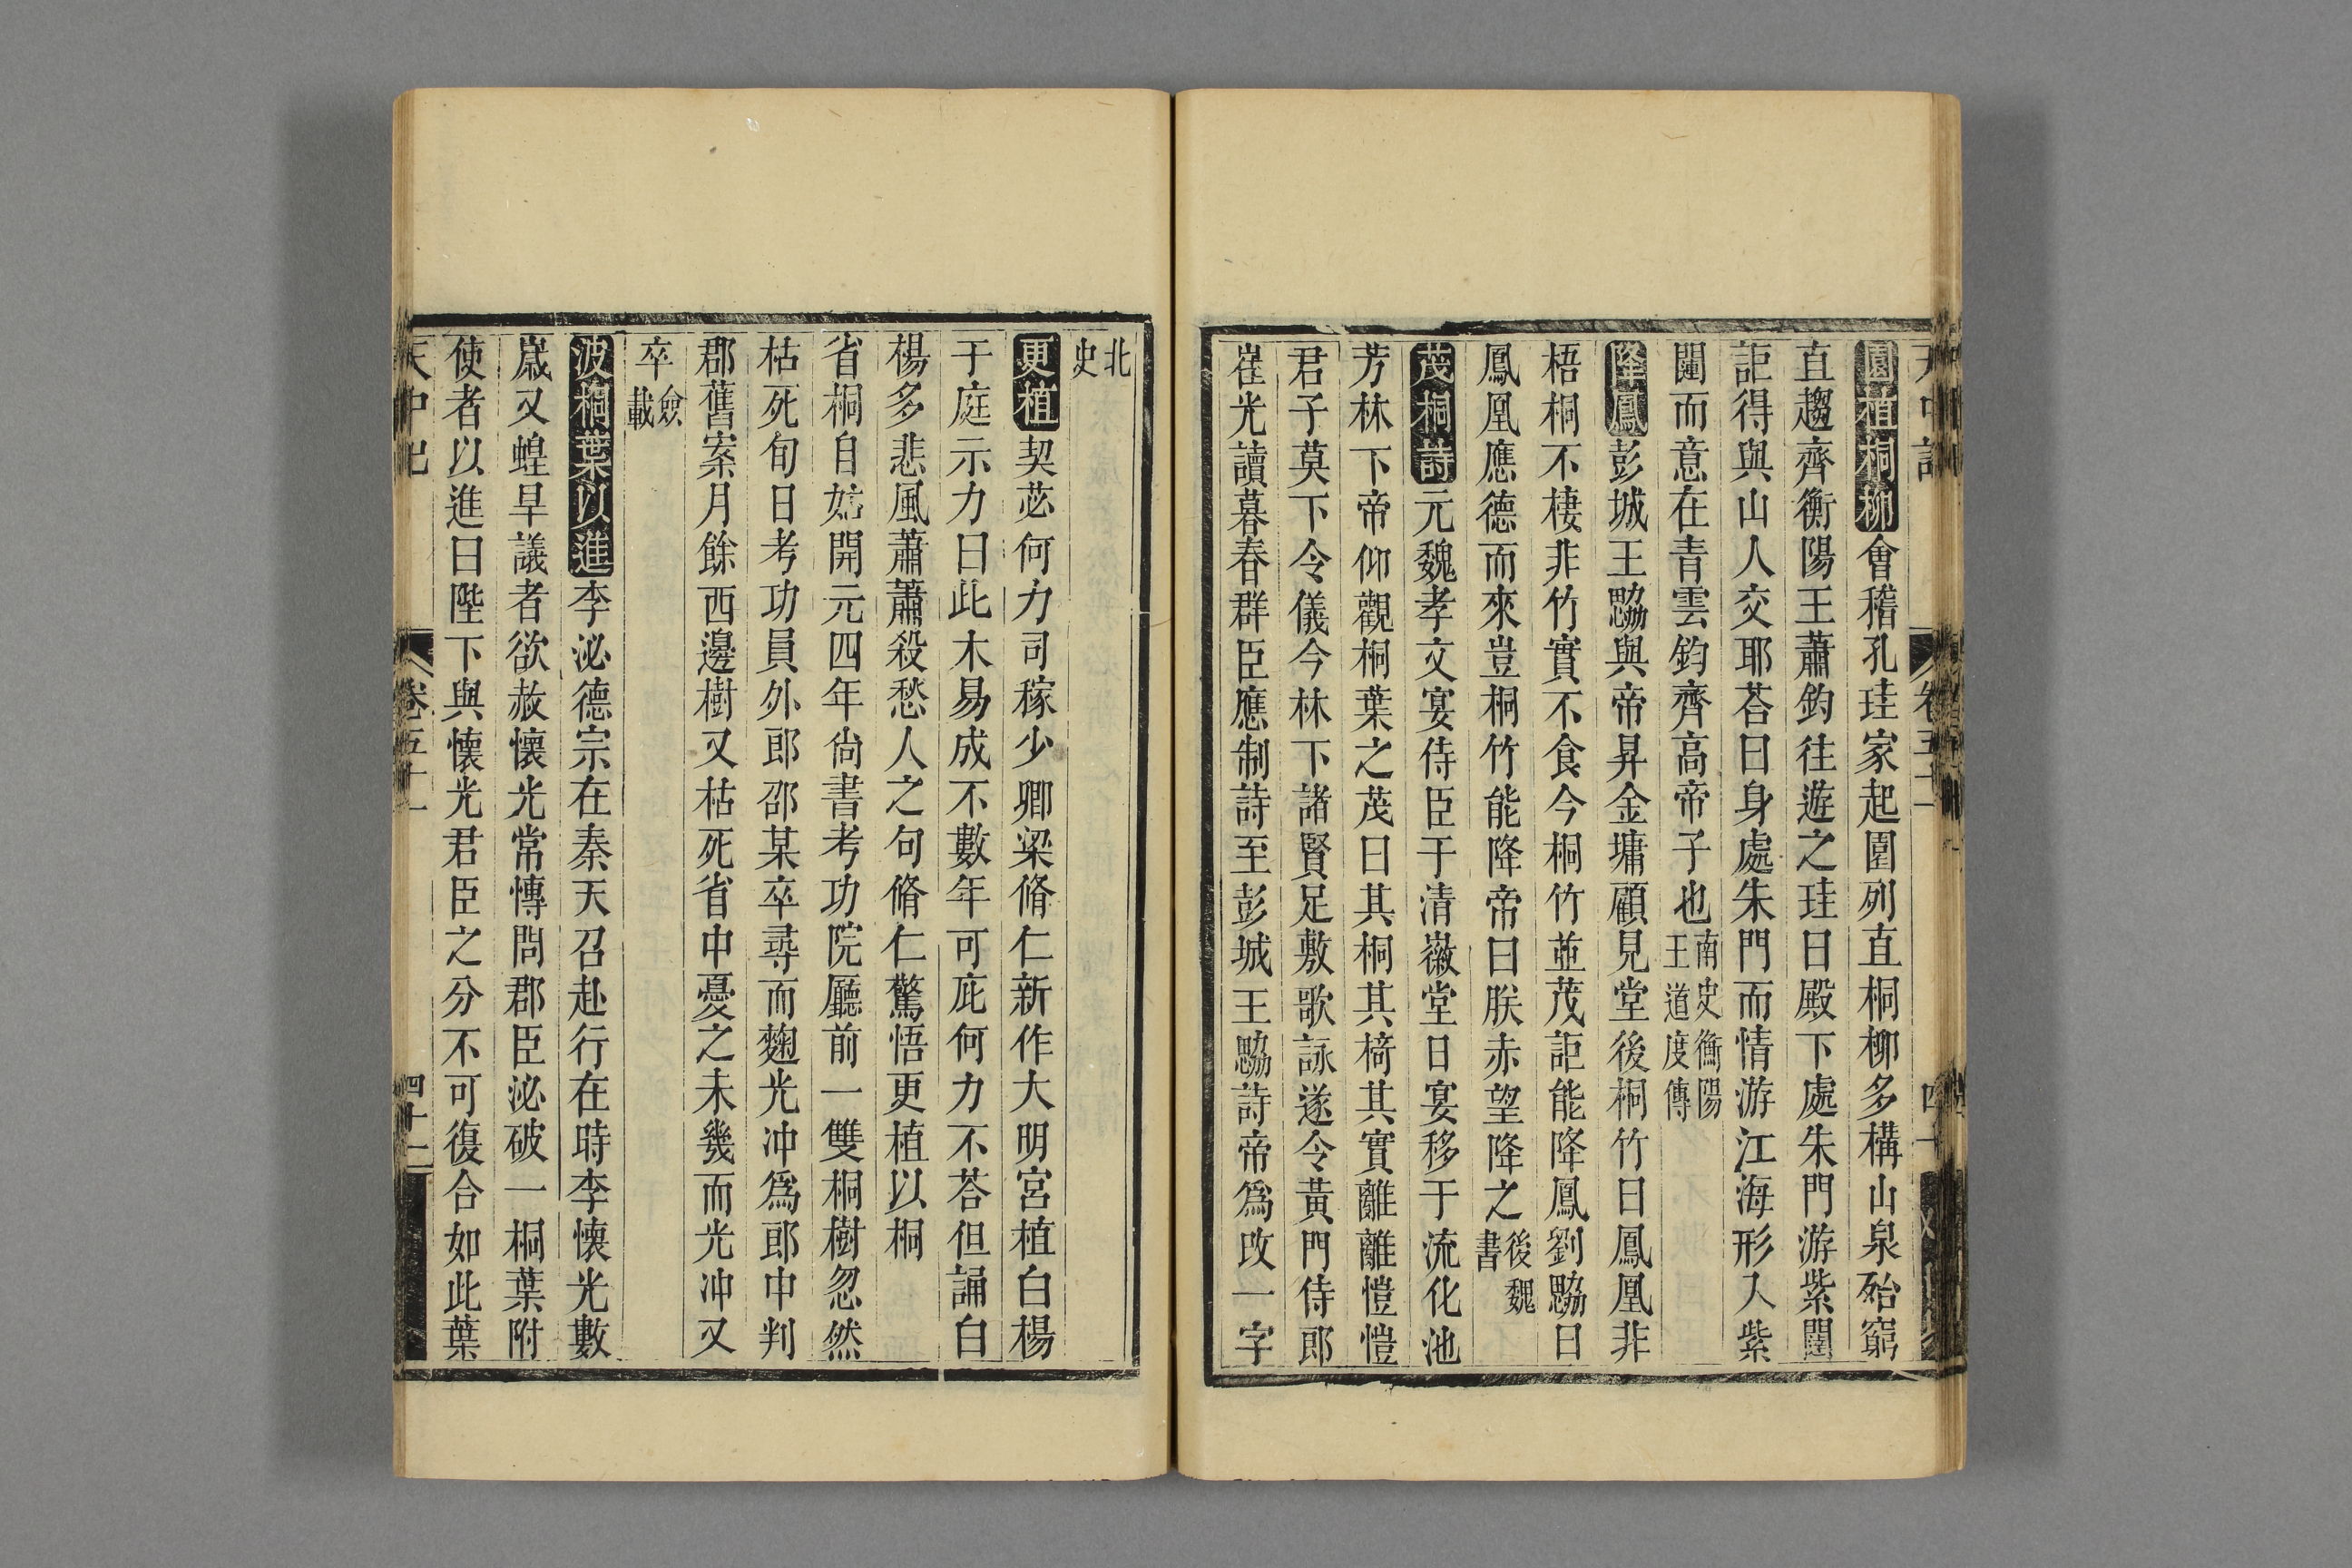 天中記 卷五十一 四十
園植桐柳會稽孔珪家起園列直桐柳多構山泉殆窮
直趨齊衡陽王蕭鈞往遊之珪曰殿下處朱門游紫闥
詎得與山人交耶荅曰身處朱門而情游江海形入紫
闥而意在青雲鈞齊高帝子也南史衡陽王道度傳
降鳳彭城王勰與帝昇金墉顧見堂後桐竹曰鳳凰非
梧桐不棲非竹實不食今桐竹並茂詎能降鳳劉勰曰
鳳凰應德而來豈桐竹能降帝曰朕亦望降之後魏書
茂桐詩元魏孝文宴侍臣于清徽堂日宴移于流化池
芳林下帝仰觀桐葉之茂曰其桐其椅其實離離愷愷
君子莫下令儀今林下諸賢足敷歌詠遂令黃門侍郎
崔光讀暮春群臣應制詩至彭城王勰詩帝爲改一字
北史
更植契苾何力司稼少卿梁脩仁新作大明宮植白楊
于庭示力曰此木易成不數年可庇何力不荅但誦白
楊多悲風蕭蕭殺愁人之句脩仁驚悟更植以桐
省桐自妬開元四年尙書考功院廳前一雙桐樹忽然
枯死旬日考功員外郎邵某卒尋而麴光冲爲郎中判
郡舊案月餘西邊樹又枯死省中憂之未幾而光冲又
卒僉載
波桐葉以進李泌德宗在奏天召赴行在時李懷光數
嵗又蝗旱議者欲赦懷光常愽問郡臣泌破一桐葉附
使者以進曰陛下與懷光君臣之分不可復合如此葉
天中記 卷五十一 四十一